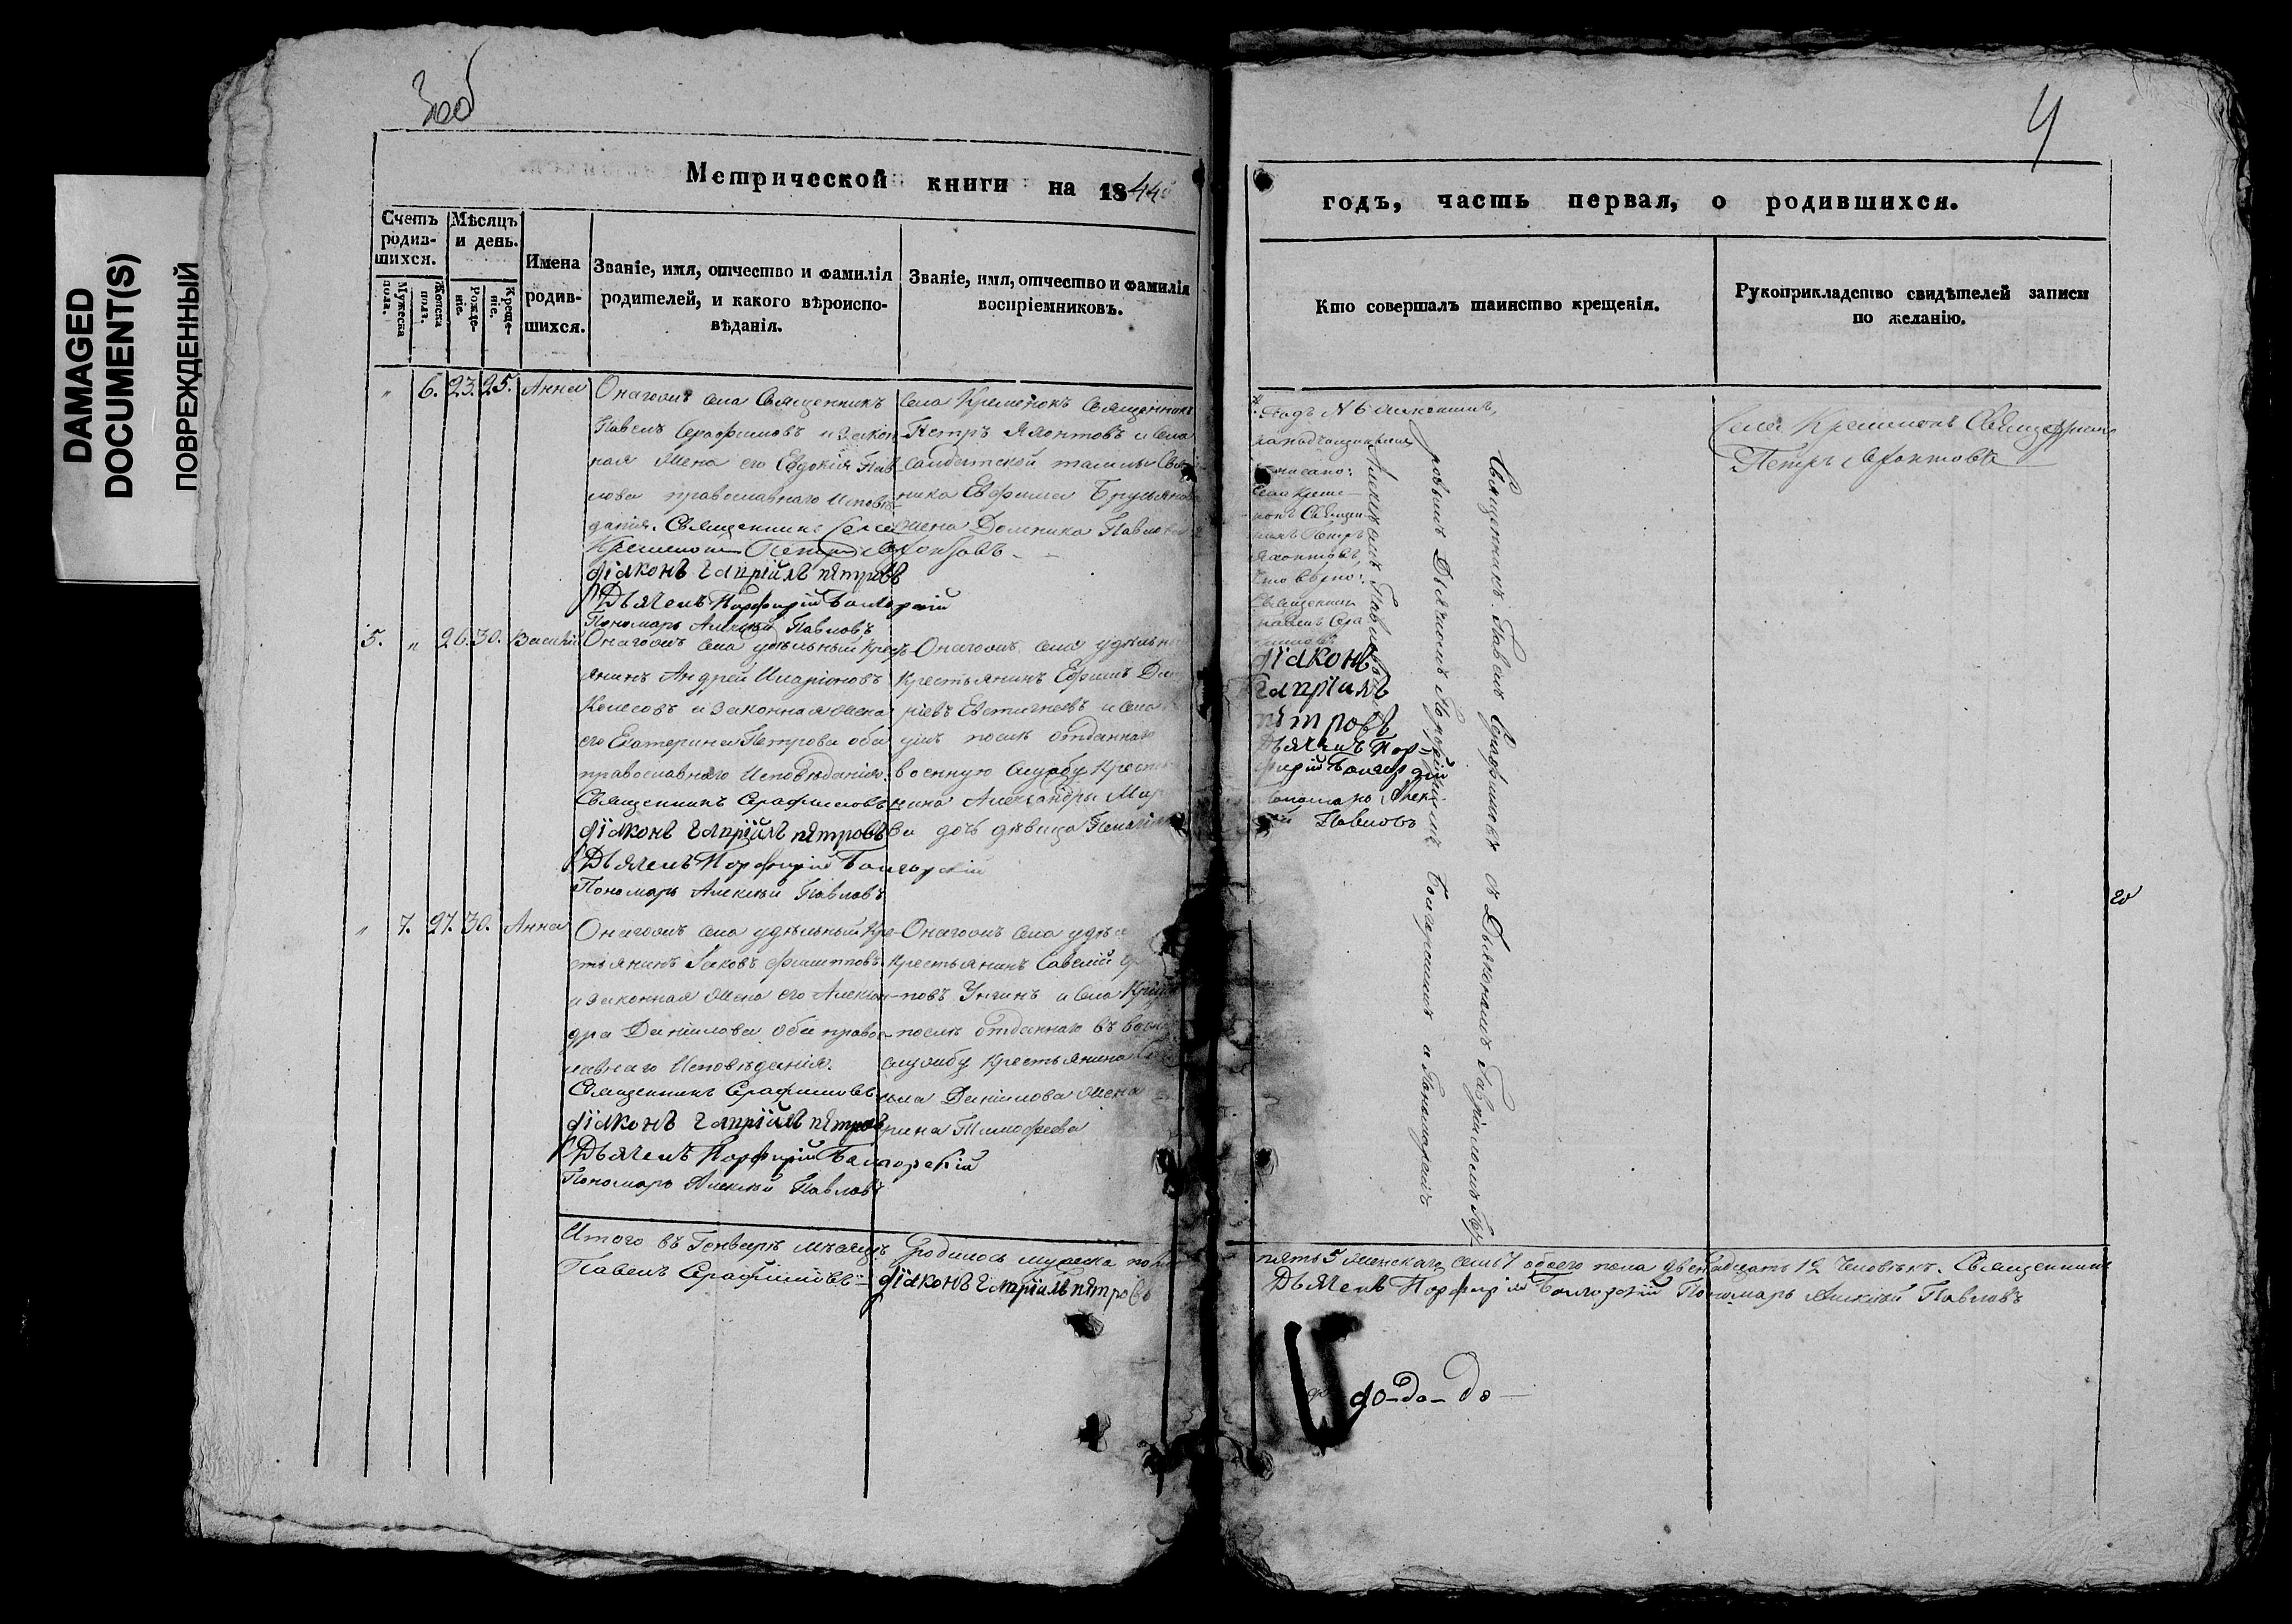 DAMAGED
DOCUMENT(S)
ПОВРЕЖДЕННЫЙ
3об
4
Метрической книги на 1844й
годъ, часть первая, о родившихся.
Счетъ родив-шихся.
Мужеска пола.
Женска пола.
Мѣсяцъ и день.
Рожде-ніе.
Креще-ніе.
Имена родив-шихся.
Званіе, имя, отчество и фамилія
родителей, и какого вѣроиспо-
вѣданія.
Званіе, имя, отчество и фамилія
воспріемниковъ.
Кто совершалъ таинство крещенія.
Рукоприкладство свидѣтелей записи
по желанію.
" 6. 23. 25. Анна
Онагожъ села Священникъ
Павелъ Серафимовъ и закон-
ная жена его Евдокія Пав-
лова православнаго Исповѣ-
данія. Священникъ села
Кременокъ Петръ Яхонтовъ
діаконъ гавріилъ пѣтровъ
Дьячекъ Порфирій Болгорскій
Пономарь Алексѣй Павловъ
Села Кременокъ Священникъ
Петръ Яхонтовъ и села
Священ-
ника Ефима
жена Домника Павлова
Подъ № 6
написано:
села Креме-
нокъ Священ-
никъ Петръ
Яхонтовъ,
что вѣрно:
Священникъ
Павелъ Сера
фимовъ
діаконъ
гавріилъ
пѣтровъ
Дьячекъ Пор-
фирій Болгорскій
Пономарь Алек-
сѣй Павловъ
Села Кременокъ Священникъ
Петръ Яхонтовъ
5. " 26. 30. Василій
Онагожъ села удѣльный крест-
янинъ Андрей Иларіоновъ
Колесовъ и законная жена
его Екатерина Петрова оба
православнаго Исповѣданія.
Священникъ Серафимовъ
діаконъ гавріилъ пѣтровъ
Дьячекъ Порфирій Болгорскій
Пономарь Алексѣй Павловъ
Онагожъ села удѣльн
крестьянинъ Ефимъ
ріевъ Евстигнеевъ и села
послѣ отданнаго
военную службу крест
нина Александры
ва дочь дѣвица Пелагія
Священникъ Павелъ Серафимовъ съ Дьякономъ Гавріиломъ Пет
ровымъ Дьячкомъ Порфиріемъ Болгорскимъ и Пономаремъ
Алексѣемъ Павловымъ
" 7. 27. 30. Анна
Онагожъ села удѣльный кре-
стьянинъ Іаковъ Филипповъ
и законная жена его Алексан-
дра Данилова оба правос-
лавнаго Исповѣданія.
Священникъ Серафимовъ
діаконъ гавріилъ пѣтровъ
Дьячекъ Порфирій Болгорскій
Пономарь Алексѣй Павловъ
Онагожъ села удѣ
крестьянинъ Савелій
повъ Унгинъ и села
послѣ отданнаго въ воен
службу крестьянина
Данилова жена
рина Тимофеева
Итого въ Генварѣ мѣсяцѣ родилось мужеска пола
пять 5 женскаго семь 7 обоего пола двенадцать 12 человѣкъ. Священникъ
Павелъ Серафимовъ діаконъ гавріилъ пѣтровъ
Дьячекъ Порфирій Болгорскій Пономарь Алексѣй Павловъ
до-до-до